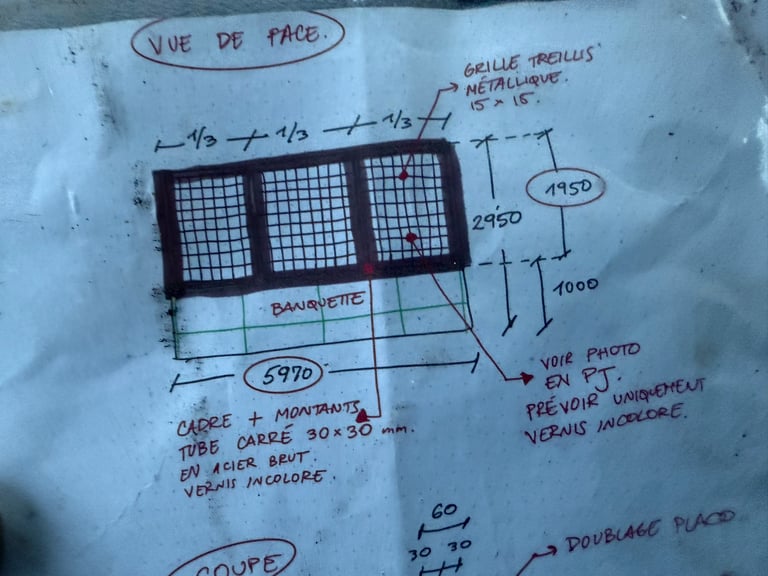 VUE DE FACE.
GRILLE TREILLIS
MÉTALLIQUE.
15 x 15.
1/3
1/3
1/3
1950
2950
1000
BANQUETTE
5970
VOIR PHOTO
EN PJ.
PRÉVOIR UNIQUEMENT
VERNIS INCOLORE.
CADRE + MONTANTS
TUBE CARRÉ 30x30 mm.
EN ACIER BRUT.
VERNIS INCOLORE.
60
30 30
DOUBLAGE PLACO
COUPE